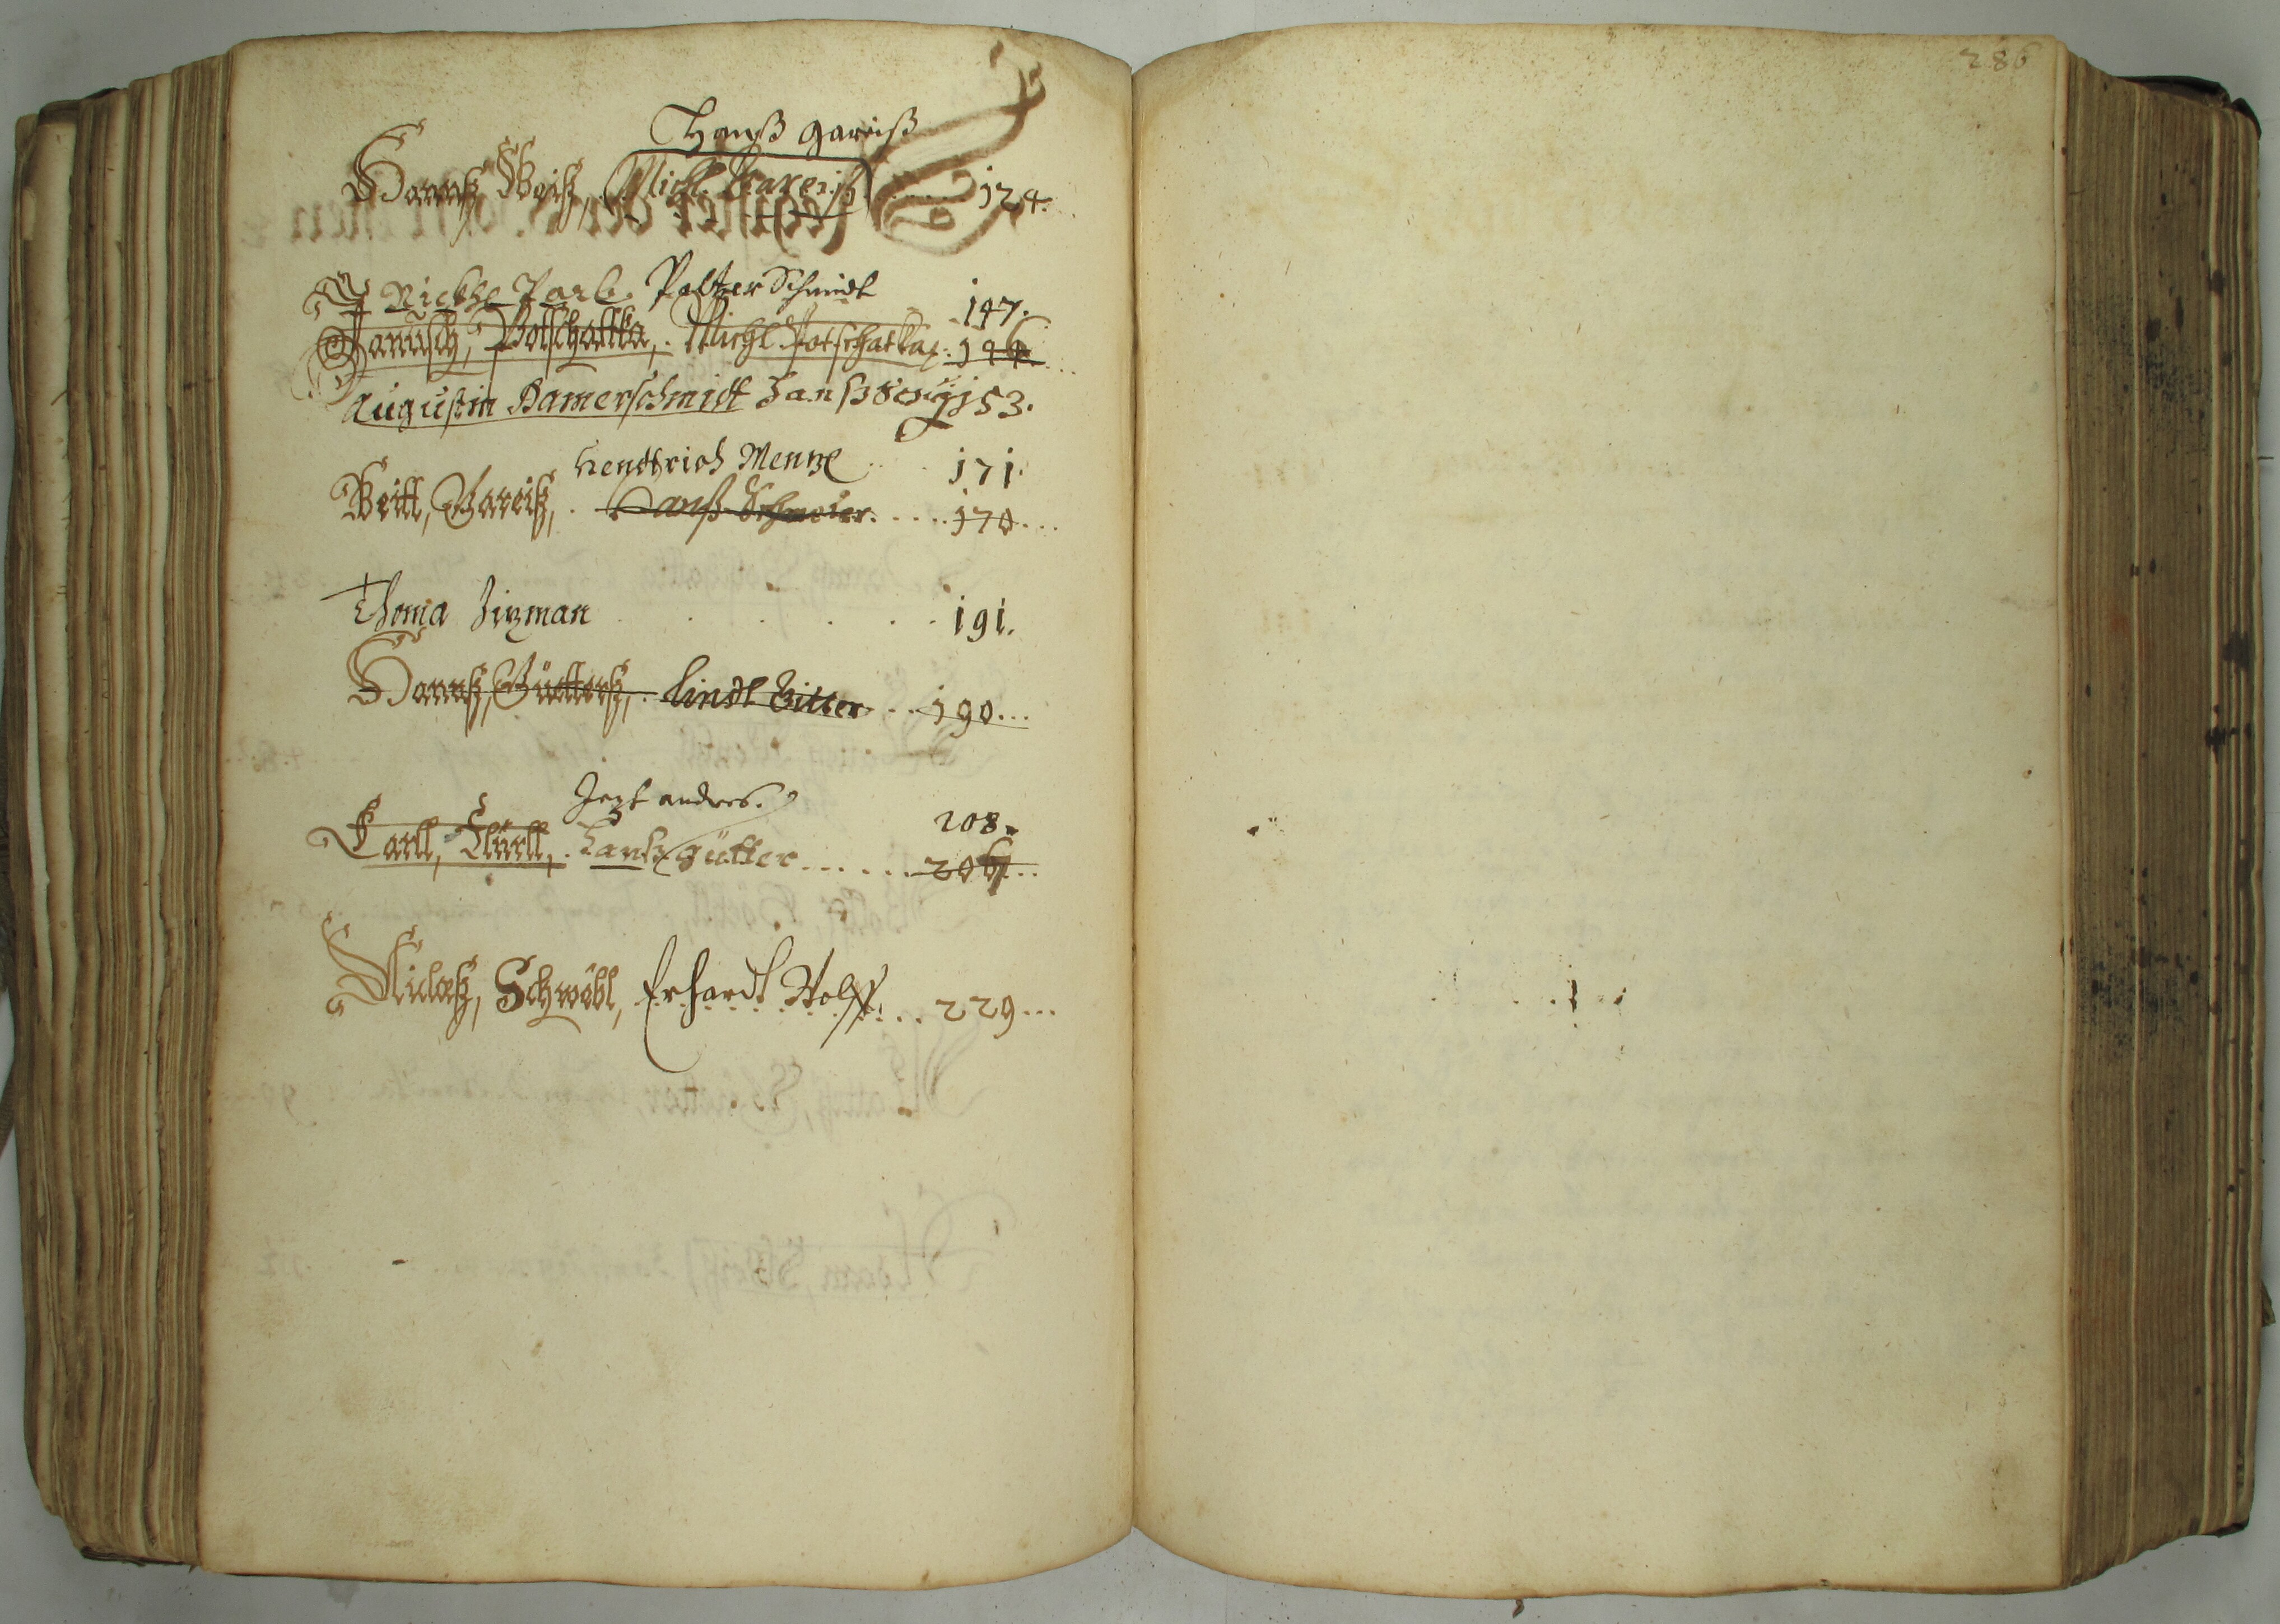 286
Hanß gareiß
Hannß Weiß, Michl Gareiß 124.
Palzer Schmidt 147.
Janusch, Potschattka, Michl Potschatka 146
Augustin Bamerschmidt Hanß 153.
Hendtrich Menzl 171.
Veitl, Gareiß, Hanß Schmeier 170
Thoma Zizman 191.
Hannß, Güetterß, Lindl Gitter 190
Jezt andres. 208.
Carll, Türll, Hanß gütter 206
Niclaß, Schwäbl, Erhardt Wolff 229